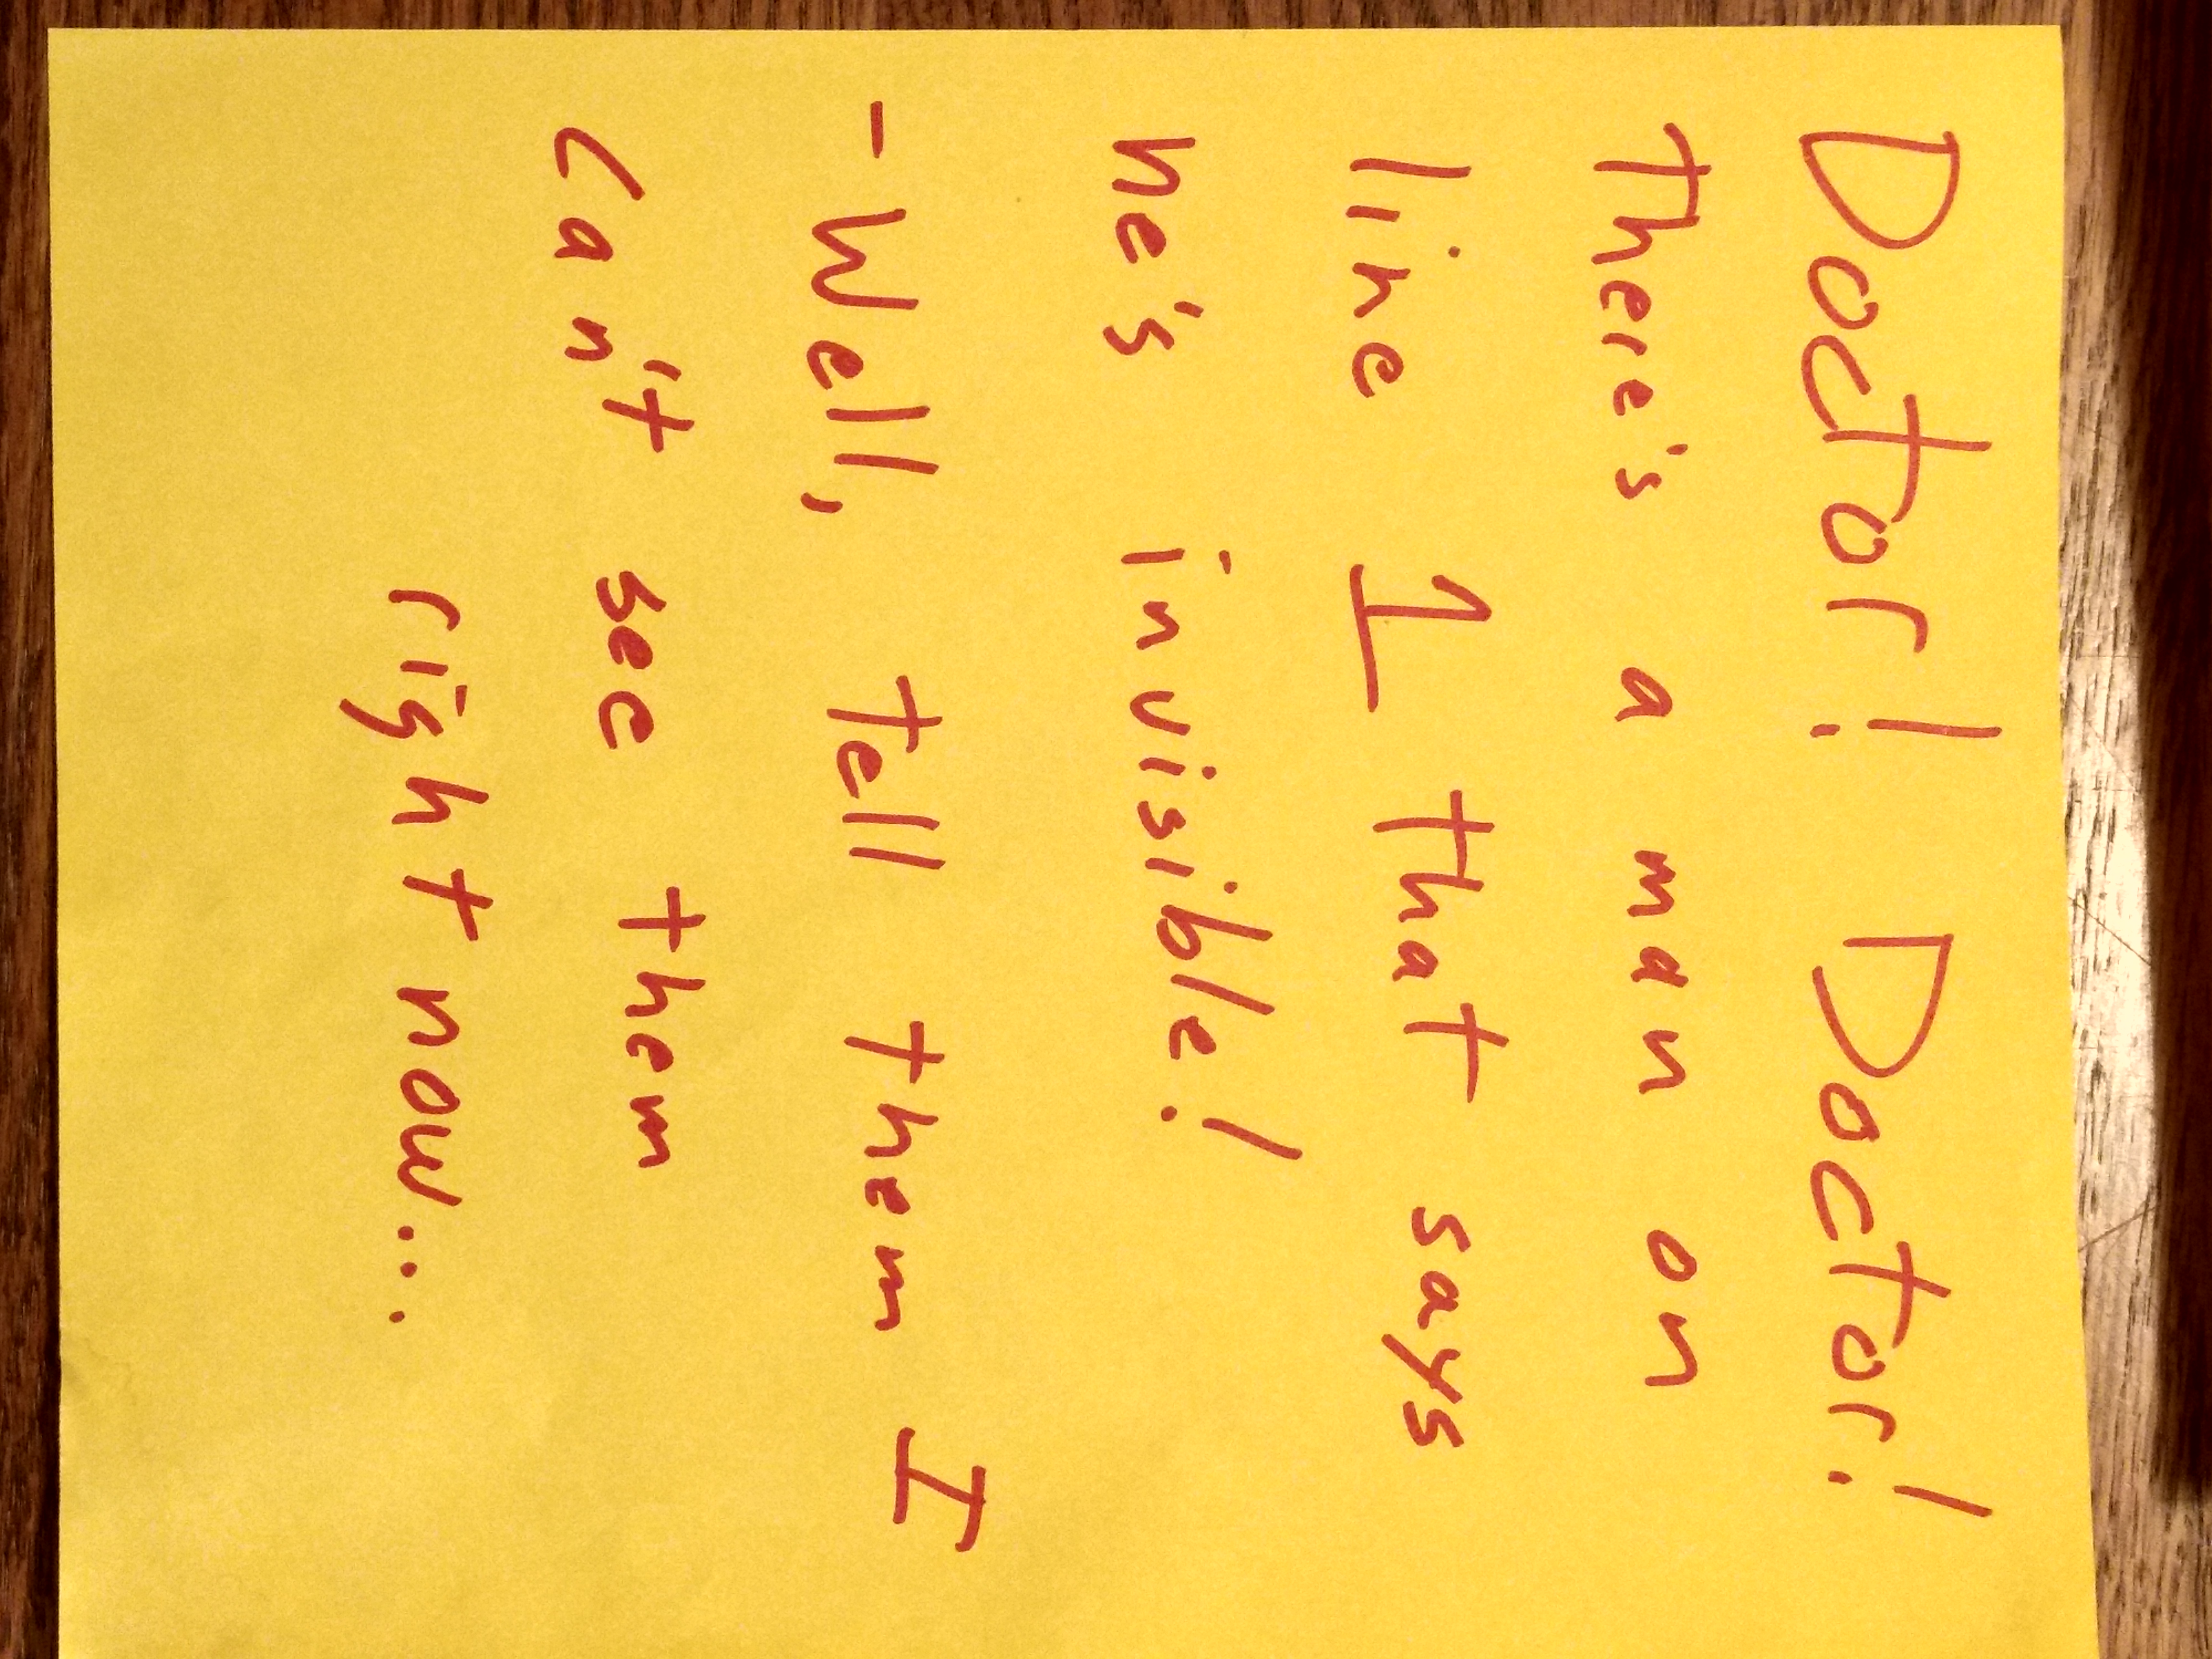 Doctor! Doctor!
There's a man on
line 1 that says
he's invisible!
- Well, tell them I
can't see them
right now...